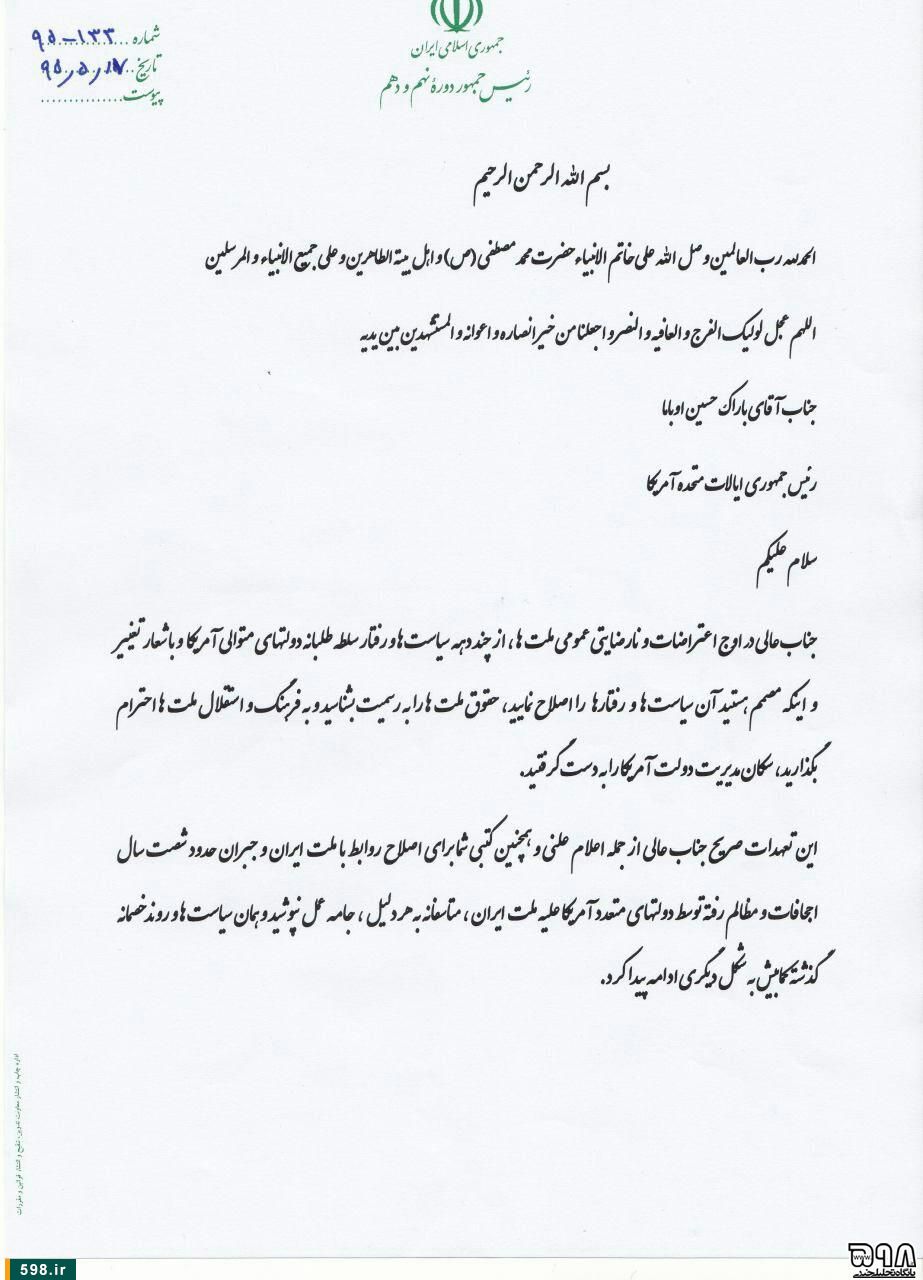 جمهوری اسلامی ایران
رئیس جمهور دورهٔ نهم و دهم
شماره ۱۳۳-۹۵
تاریخ ۹۵,۵,۱۷
پیوست
بسم الله الرحمن الرحیم
الحمدلله رب العالمین و صل الله علی خاتم الانبیاء حضرت محمد مصطفی (ص) و اهل بیته الطاهرین و علی جمیع الانبیاء و المرسلین
اللهم عجل لولیک الفرج و العافیه و النصر و اجعلنا من خیر انصاره و اعوانه و المستشهدین بین یدیه
جناب آقای باراک حسین اوباما
رئیس جمهوری ایالات متحده آمریکا
سلام علیکم
جناب عالی در اوج اعتراضات و نارضایتی عمومی ملت ها، از چند دهه سیاست ها و رفتار سلطه طلبانه دولتهای متوالی آمریکا و با شعار تغییر
و اینکه مصمم هستید آن سیاست ها و رفتارها را اصلاح نمایید، حقوق ملت ها را به رسمیت بشناسید و به فرهنگ و استقلال ملت ها احترام
بگذارید، سکان مدیریت دولت آمریکا را به دست گرفتید.
این تعهدات صریح جناب عالی از جمله اعلام علنی و همچنین کتبی شما برای اصلاح روابط با ملت ایران و جبران حدود شصت سال
اجحافات و مظالم رفته توسط دولتهای متعدد آمریکا علیه ملت ایران، متاسفانه به هر دلیل، جامه عمل نپوشید و همان سیاست ها و روند خصمانه
گذشته کمابیش به شکل دیگری ادامه پیدا کرد.
اداره چاپ و انتشار معاونت تدوین، تنقیح و انتشار قوانین و مقررات
598.ir
۵۹۸
www
پایگاه تحلیلی خبری